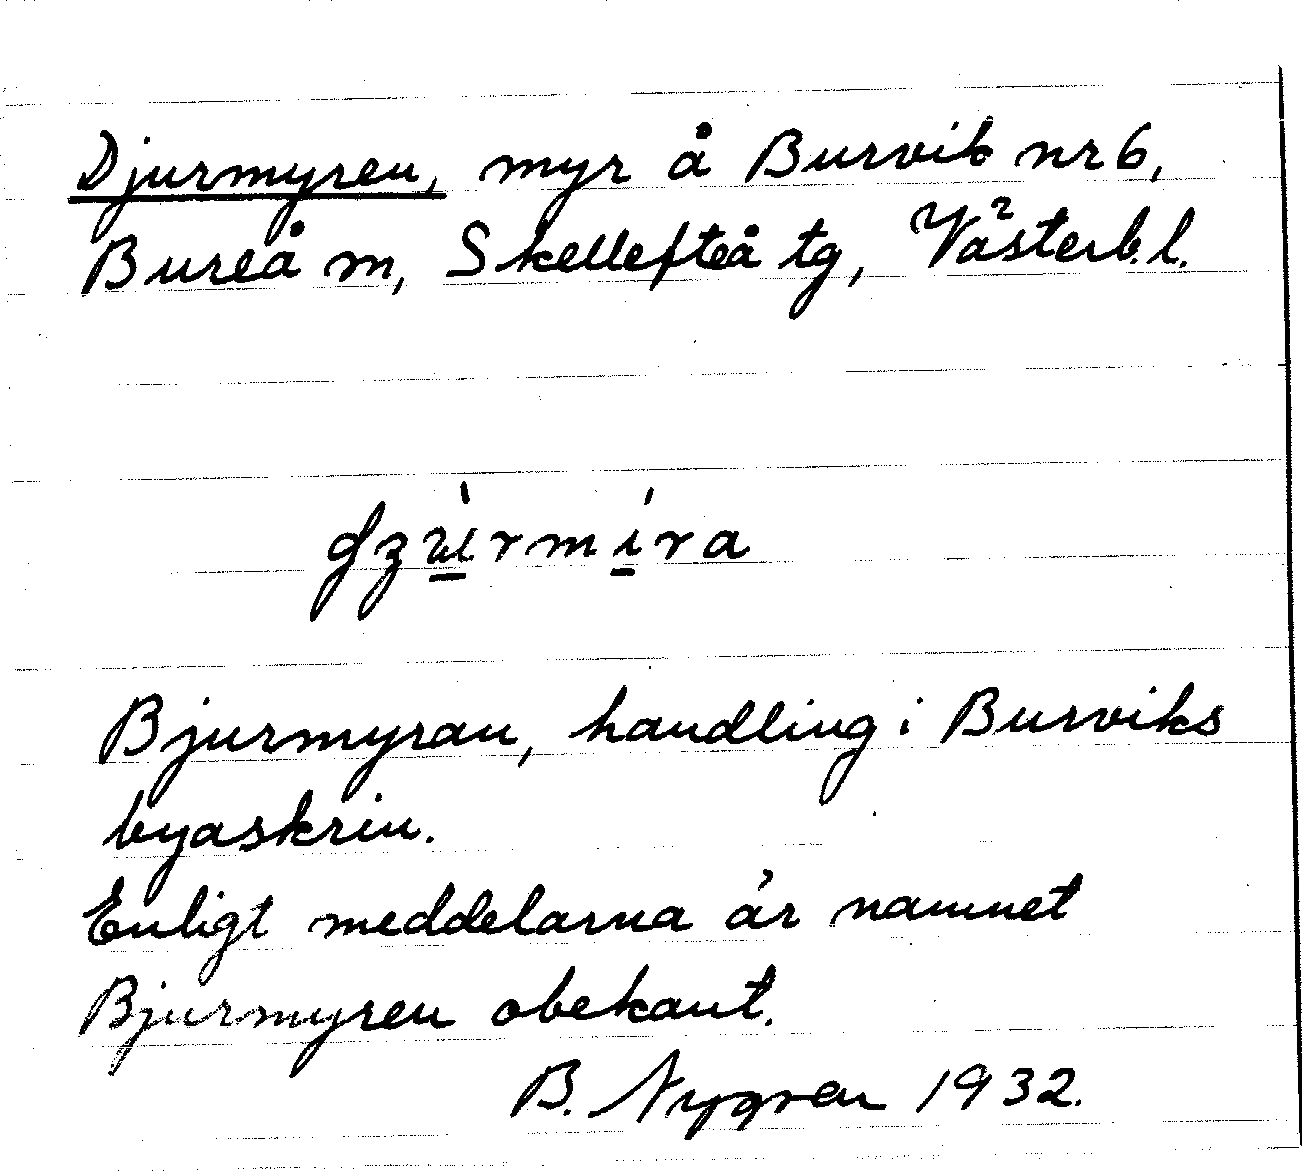 Djurmyren, myr å Burvik nr 6,
Bureå m, Skellefteå tg, Västerb. l.
Bjurmyran, handling i Burviks
byaskrin.
Enligt meddelarna är namnet
Bjurmyren obekant.
B. Nygren 1932.